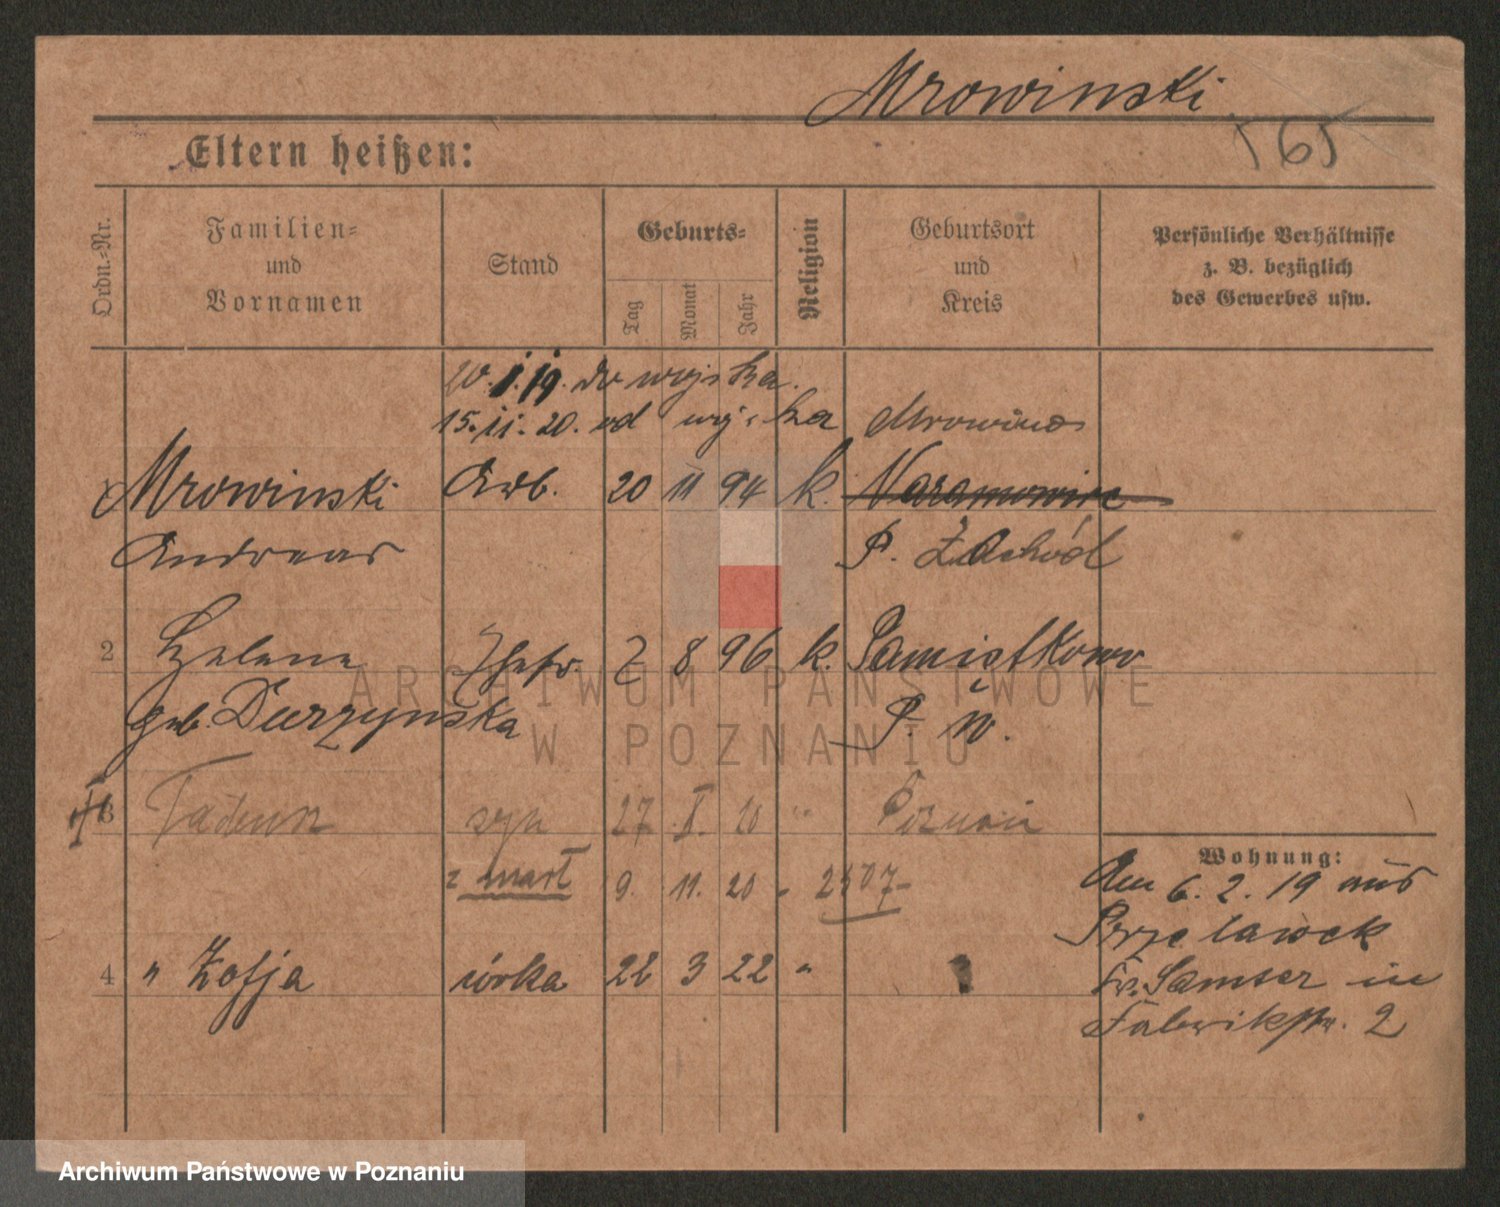 Mrowinski
565
Eltern heißen:
Ordn.-Nr.
Familien-
und
Vornamen
Stand
Geburts-
Tag
Monat
Jahr
Religion
Geburtsort
und
Kreis
Persönliche Verhältnisse
z. B. bezüglich
des Gewerbes usw.
20. 1. 19. do wojska.
15. 11. 20. od wojska Mrowino
1 Mrowinski Arb. 20 11 94 k.
Andreas P. Zachód
2 Helene Ehefr. 2 8 96 k. Pamiątkowo
geb. Durzynska P. W.
3 Tadeusz syn 27 X. 20 " Poznań
zmarł 9. 11. 20 - 2507-
4 " Zofja córka 22 3 22 "
Wohnung:
Am 6. 2. 19 aus
Przeclawek
Kr. Samter in
Fabrikstr. 2
ARCHIWUM PAŃSTWOWE
W POZNANIU
Archiwum Państwowe w Poznaniu